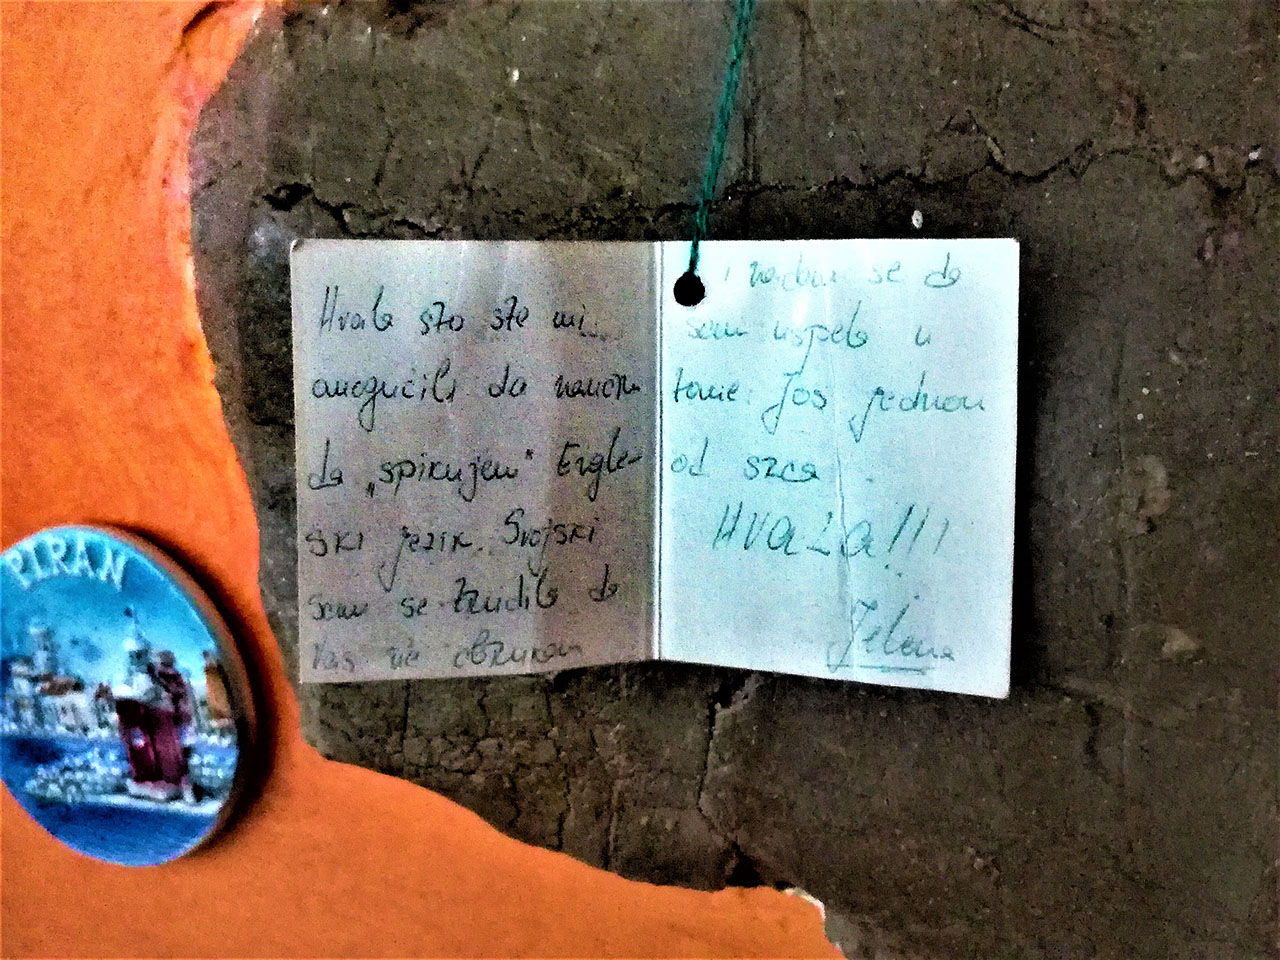 PIRAN
Hvala što ste mi
omogućili da naučim
da „spikujem" Engle-
ski jezik. Svojski
sam se trudila da
Vas ne obrukam
i nadam se da
sam uspela u
tome. Još jednom
od srca
HVALA!!!
Jelena